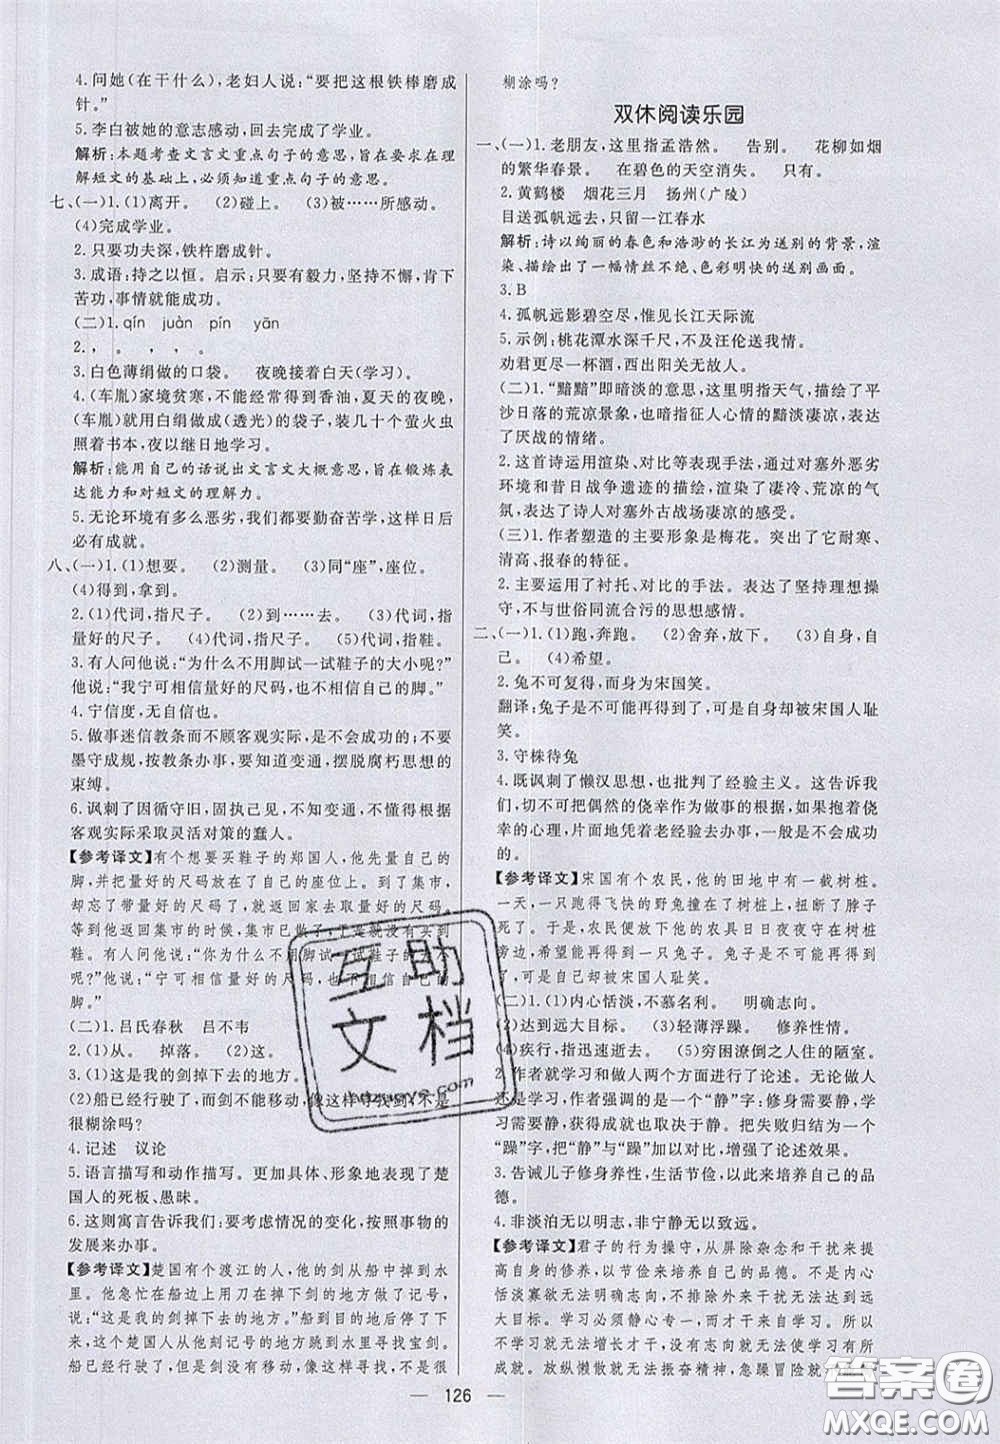 4.问她(在干什么),老妇人说:“要把这根铁棒磨成
针。”
5.李白被她的意志感动,回去完成了学业。
解析:本题考查文言文重点句子的意思,旨在要求在理
解短文的基础上,必须知道重点句子的意思。
七、(一)1.(1)离开。 (2)碰上。 (3)被……所感动。
(4)完成学业。
2.只要功夫深,铁杵磨成针。
3.成语:持之以恒。启示:只要有毅力,坚持不懈,肯下
苦功,事情就能成功。
(二)1.qín juàn pín yān
2.,。,,。
3.白色薄绢做的口袋。 夜晚接着白天(学习)。
4.(车胤)家境贫寒,不能经常得到香油,夏天的夜晚,
(车胤)就用白绢做成(透光)的袋子,装几十个萤火虫
照着书本,夜以继日地学习。
解析:能用自己的话说出文言文大概意思,旨在锻炼表
达能力和对短文的理解力。
5.无论环境有多么恶劣,我们都要勤奋苦学,这样日后
必有成就。
八、(一)1.(1)想要。 (2)测量。 (3)同“座”,座位。
(4)得到,拿到。
2.(1)代词,指尺子。 (2)到……去。 (3)代词,指
量好的尺子。 (4)代词,指尺子。 (5)代词,指鞋。
3.有人问他说:“为什么不用脚试一试鞋子的大小呢?”
他说:“我宁可相信量好的尺码,也不相信自己的脚。”
4.宁信度,无自信也。
5.做事迷信教条而不顾客观实际,是不会成功的;不要
墨守成规,按教条办事,要知道变通,摆脱腐朽思想的
束缚。
6.讽刺了因循守旧,固执己见,不知变通,不能根据
客观实际采取灵活对策的蠢人。
【参考译文】有个想要买鞋子的郑国人,他先量自己的
脚,并把量好的尺码放在了自己的座位上。到了集市,
却忘了带量好的尺码,就返回家去取量好的尺码。
等到他返回集市的时候,集市已散了,于是就没有买到
鞋子。有人问他说:“你为什么不用脚试一试鞋子的大小
呢?”他说:“宁可相信量好的尺码,也不相信自己的
脚。”
(二)1.吕氏春秋 吕不韦
2.(1)从。 掉落。 (2)这。
3.(1)这是我的剑掉下去的地方。
(2)船已经行驶了,而剑不能移动,像这样寻找剑,不是
很糊涂吗?
4.记述 议论
5.语言描写和动作描写。更加具体、形象地表现了楚
国人的死板、愚昧。
6.这则寓言告诉我们:要考虑情况的变化,按照事物的
发展来办事。
【参考译文】楚国有个渡江的人,他的剑从船中掉到水
里。他急忙在船边上用刀在掉下剑的地方做了记号,
说:“这是我的剑掉下去的地方。”船到目的地后停了下
来,这个楚国人从他刻记号的地方跳到水里寻找宝剑。
船已经行驶了,但是剑没有移动,像这样寻找剑,不是很
糊涂吗?
双休阅读乐园
一、(一)1.老朋友,这里指孟浩然。 告别。 花柳如烟
的繁华春景。 在碧色的天空消失。 只有。
2.黄鹤楼 烟花三月 扬州(广陵)
目送孤帆远去,只留一江春水
解析:诗以绚丽的春色和浩渺的长江为送别的背景,渲
染、描绘出了一幅情丝不绝、色彩明快的送别画面。
3.B
4.孤帆远影碧空尽,惟见长江天际流
5.示例:桃花潭水深千尺,不及汪伦送我情。
劝君更尽一杯酒,西出阳关无故人。
(二)1.“黯黯”即暗淡的意思,这里明指天气,描绘了平
沙日落的荒凉景象,也暗指征人心情的黯淡凄凉,表达
了厌战的情绪。
2.这首诗运用渲染、对比等表现手法,通过对塞外恶劣
环境和昔日战争遗迹的描绘,渲染了凄冷、荒凉的气
氛,表达了诗人对塞外古战场凄凉的感受。
(三)1.作者塑造的主要形象是梅花。突出了它耐寒、
清高、报春的特征。
2.主要运用了衬托、对比的手法。表达了坚持理想操
守,不与世俗同流合污的思想感情。
二、(一)1.(1)跑,奔跑。 (2)舍弃,放下。 (3)自身,自
己。 (4)希望。
2.兔不可复得,而身为宋国笑。
翻译:兔子是不可能再得到了,可是自身却被宋国人耻
笑。
3.守株待兔
4.既讽刺了懒汉思想,也批判了经验主义。这告诉我
们,切不可把偶然的侥幸作为做事的根据,如果抱着侥
幸的心理,片面地凭着老经验去办事,一般是不会成功
的。
【参考译文】宋国有个农民,他的田地中有一截树桩。
一天,一只跑得飞快的野兔撞在了树桩上,扭断了脖子
死了。于是,农民便放下他的农具日日夜夜守在树桩
旁边,希望能再得到一只兔子。然而野兔是不可能再
得到了,而他自己却被宋国人耻笑。
(二)1.(1)内心恬淡,不慕名利。 明确志向。
(2)达到远大目标。 (3)轻薄浮躁。 修养性情。
(4)疾行,指迅速逝去。 (5)穷困潦倒之人住的陋室。
2.作者就学习和做人两个方面进行了论述。无论做人
还是学习,作者强调的是一个“静”字:修身需要静,学
习需要静,获得成就也需要静。把失败归结为一个
“躁”字,把“静”与“躁”加以对比,增强了论述的效果。
3.告诫儿子修身养性,生活节俭,以此来培养自己的品
德。
4.非淡泊无以明志,非宁静无以致远。
【参考译文】君子的行为操守,从屏除杂念和干扰来提
高自身的修养,以节俭来培养自己的品德。不内心
恬淡寡欲无法明确志向,不排除外来干扰无法达到远
大目标。学习必须静心专一,而才干来自学习。所以不
学习就无法增长才干,没有志向就无法使学习有所
成就。放纵懒散就无法振奋精神,急躁冒险就
126
互助
文档
答案圈
MXQE.COM